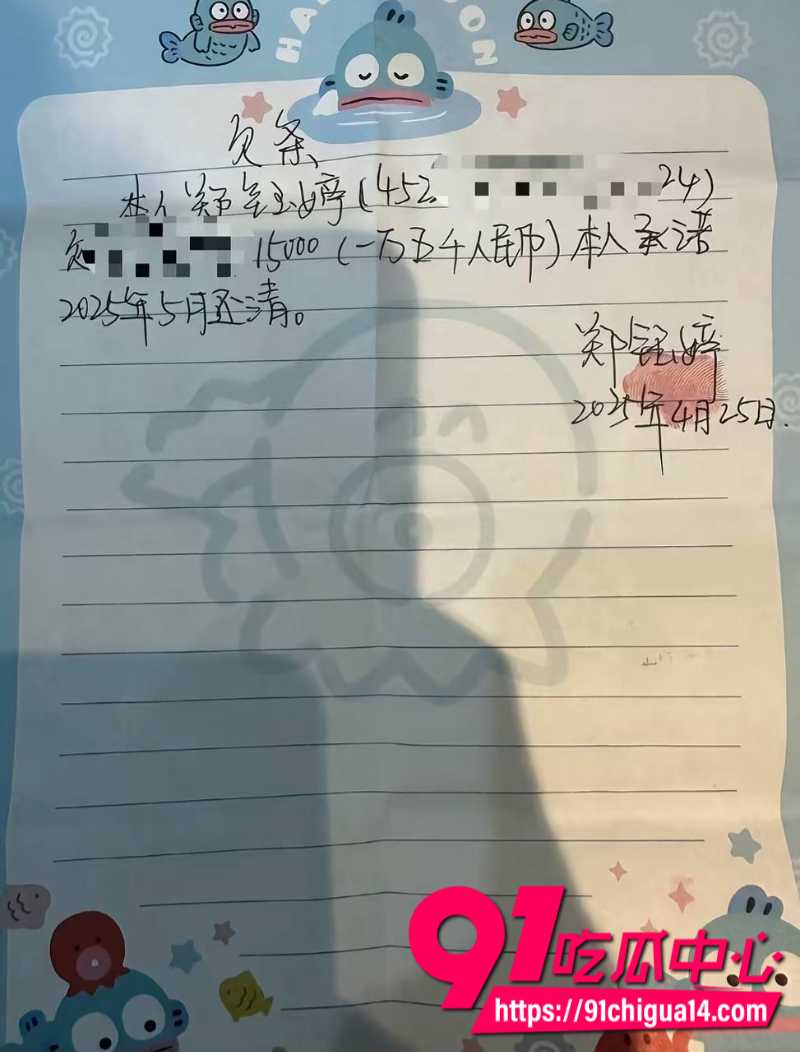 HANGYODON
欠条
本人郑钰婷(452 24)
欠 15000(一万五千人民币)本人承诺
2025年5月还清。
郑钰婷
2025年4月25日.
91吃瓜中心
https://91chigua14.com